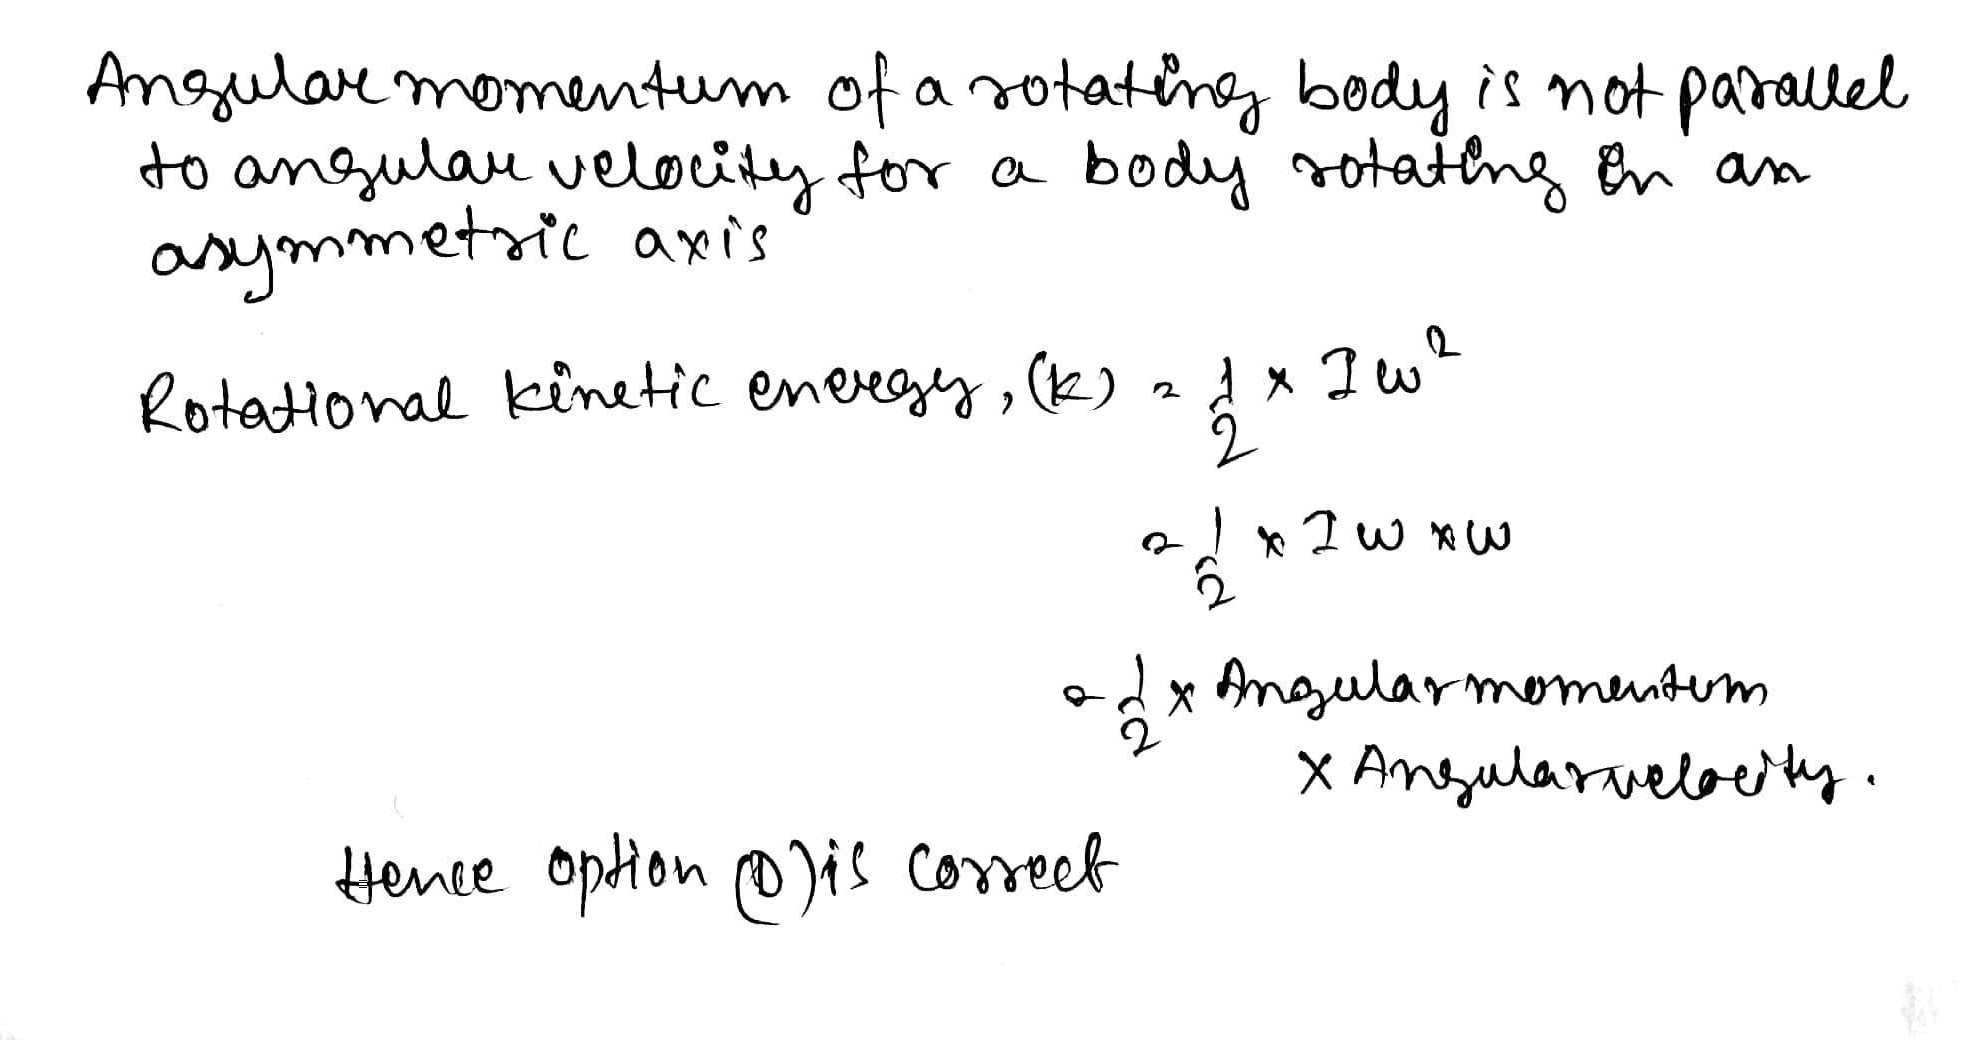 Angular momentum of a rotating body is not parallel
to angular velocity for a body rotating in an
asymmetric axis
Rotational kinetic energy, (k) = 1/2 × Iw²
= 1/2 × Iw × w
= 1/2 × Angular momentum
× Angular velocity.
Hence option (D) is correct